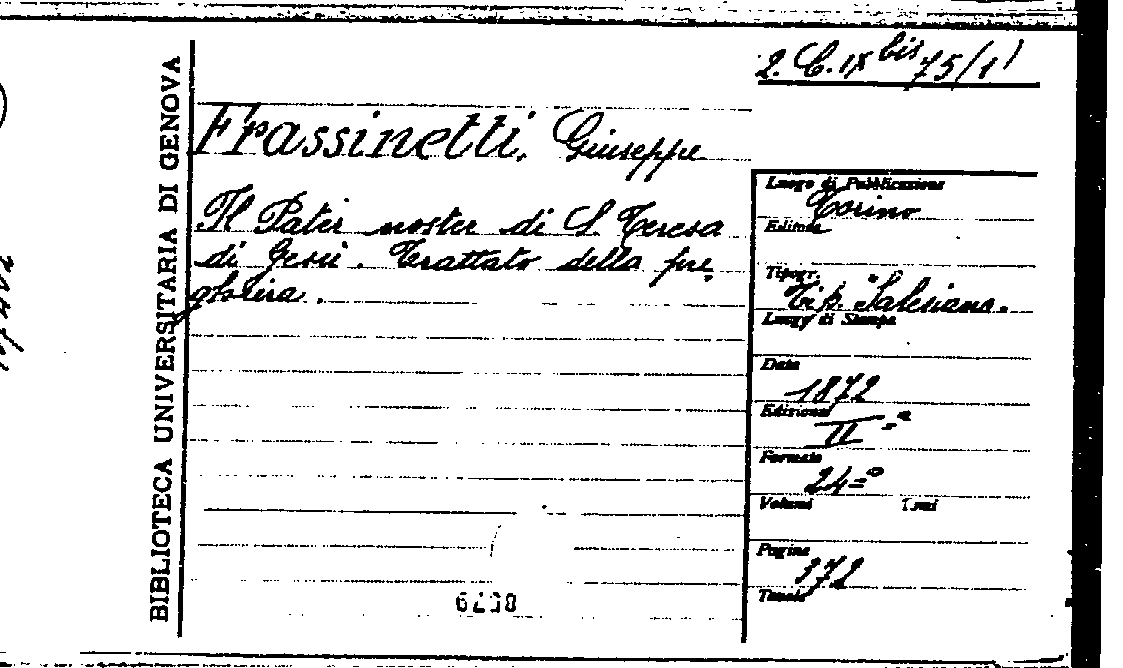 BIBLIOTECA UNIVERSITARIA DI GENOVA
2. C. IX bis 75/1)
Frassinetti, Giuseppe
Il Pater noster di S. Teresa
di Gesù. Trattato della pre
ghiera.
Luogo di Pubblicazione
Torino
Editore
Tipogr.
Tip. Salesiana.
Luogo di Stampa
Data
1872
Edizione
II=a
Formato
24=o
Volumi Tomi
Pagine
172
Tavole